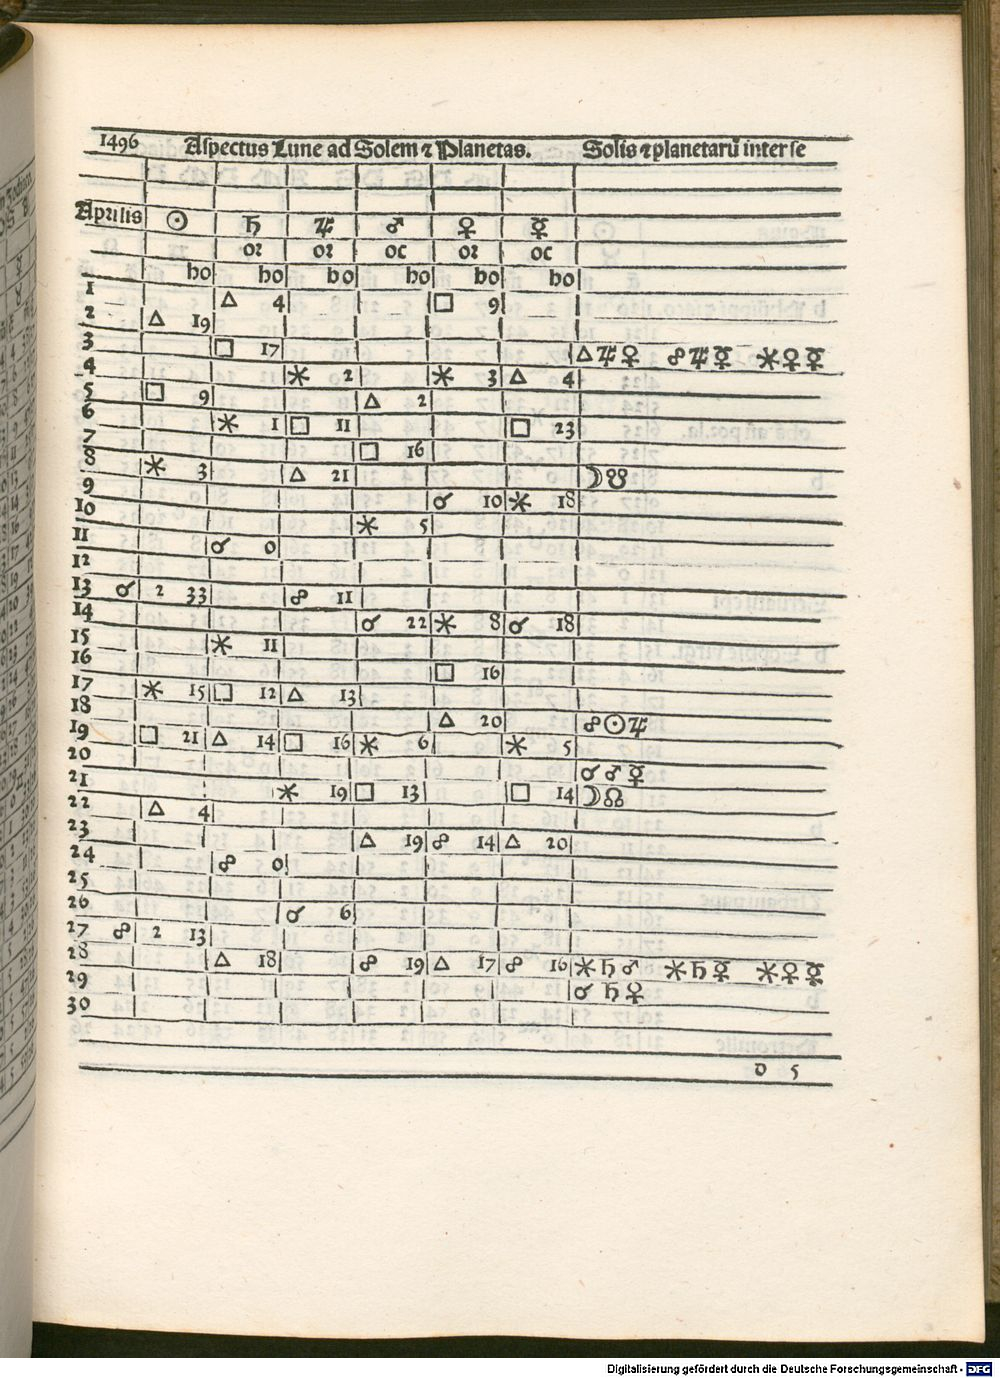 1496 Aspectus Lune ad Solem ⁊ Planetas. Solis ⁊ planetarū inter se
Aprilis ☉ ♄ ♃ ♂ ♀ ☿
oꝛ oꝛ oc oꝛ oc
ho ho ho ho ho ho
1 △ 4 □ 9
2 △ 19
3 □ 17 △♃♀ ☍♃☿ ⚹♀☿
4 ⚹ 2 ⚹ 3 △ 4
5 □ 9 △ 2
6 ⚹ 1 □ 11 □ 23
7 □ 16
8 ⚹ 3 △ 21 ☽☋
9 ☌ 10 ⚹ 18
10 ⚹ 5
11 ☌ 0
12
13 ☌ 2 33 ☍ 11
14 ☌ 22 ⚹ 8 ☌ 18
15 ⚹ 11
16 □ 16
17 ⚹ 15 □ 12 △ 13
18 △ 20 ☍☉♃
19 □ 21 △ 14 □ 16 ⚹ 6 ⚹ 5
20 ☌♂☿
21 ⚹ 19 □ 13 □ 14 ☽☊
22 △ 4
23 △ 19 ☍ 14 △ 20
24 ☍ 0
25
26 ☌ 6
27 ☍ 2 13
28 △ 18 ☍ 19 △ 17 ☍ 16 ⚹♄♂ ⚹♄☿ ⚹♀☿
29 ☌♄♀
30
D 5
Digitalisierung gefördert durch die Deutsche Forschungsgemeinschaft - DFG